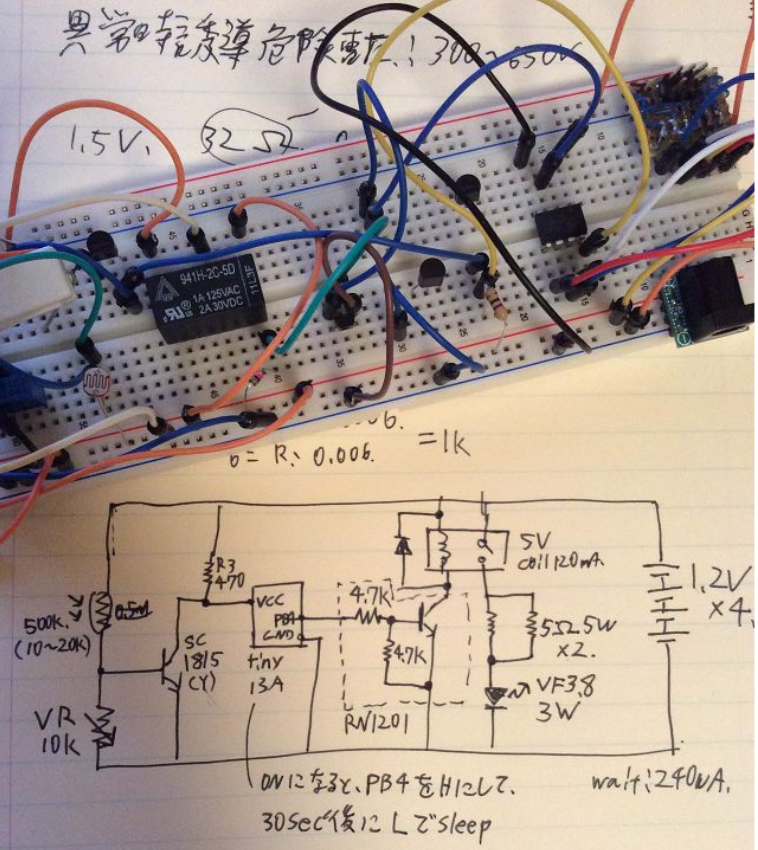 危険電圧! 300~650V
1.5V. 32Ω
941H-2C-5D
1A 125VAC
2A 30VDC
0= R、0.006.
=1k
R3
470
5V
coil120mA.
500K.
0.5M
(10~20K)
VCC
PB4
GND
4.7K
4.7K
1.2V
×4.
5Ω2.5W
×2.
SC
1815
(Y)
tiny
13A
VR
10K
RN1201
VF3.8
3W
ONになると、PB4をHにして、
30sec後にLでsleep
wait:240uA.